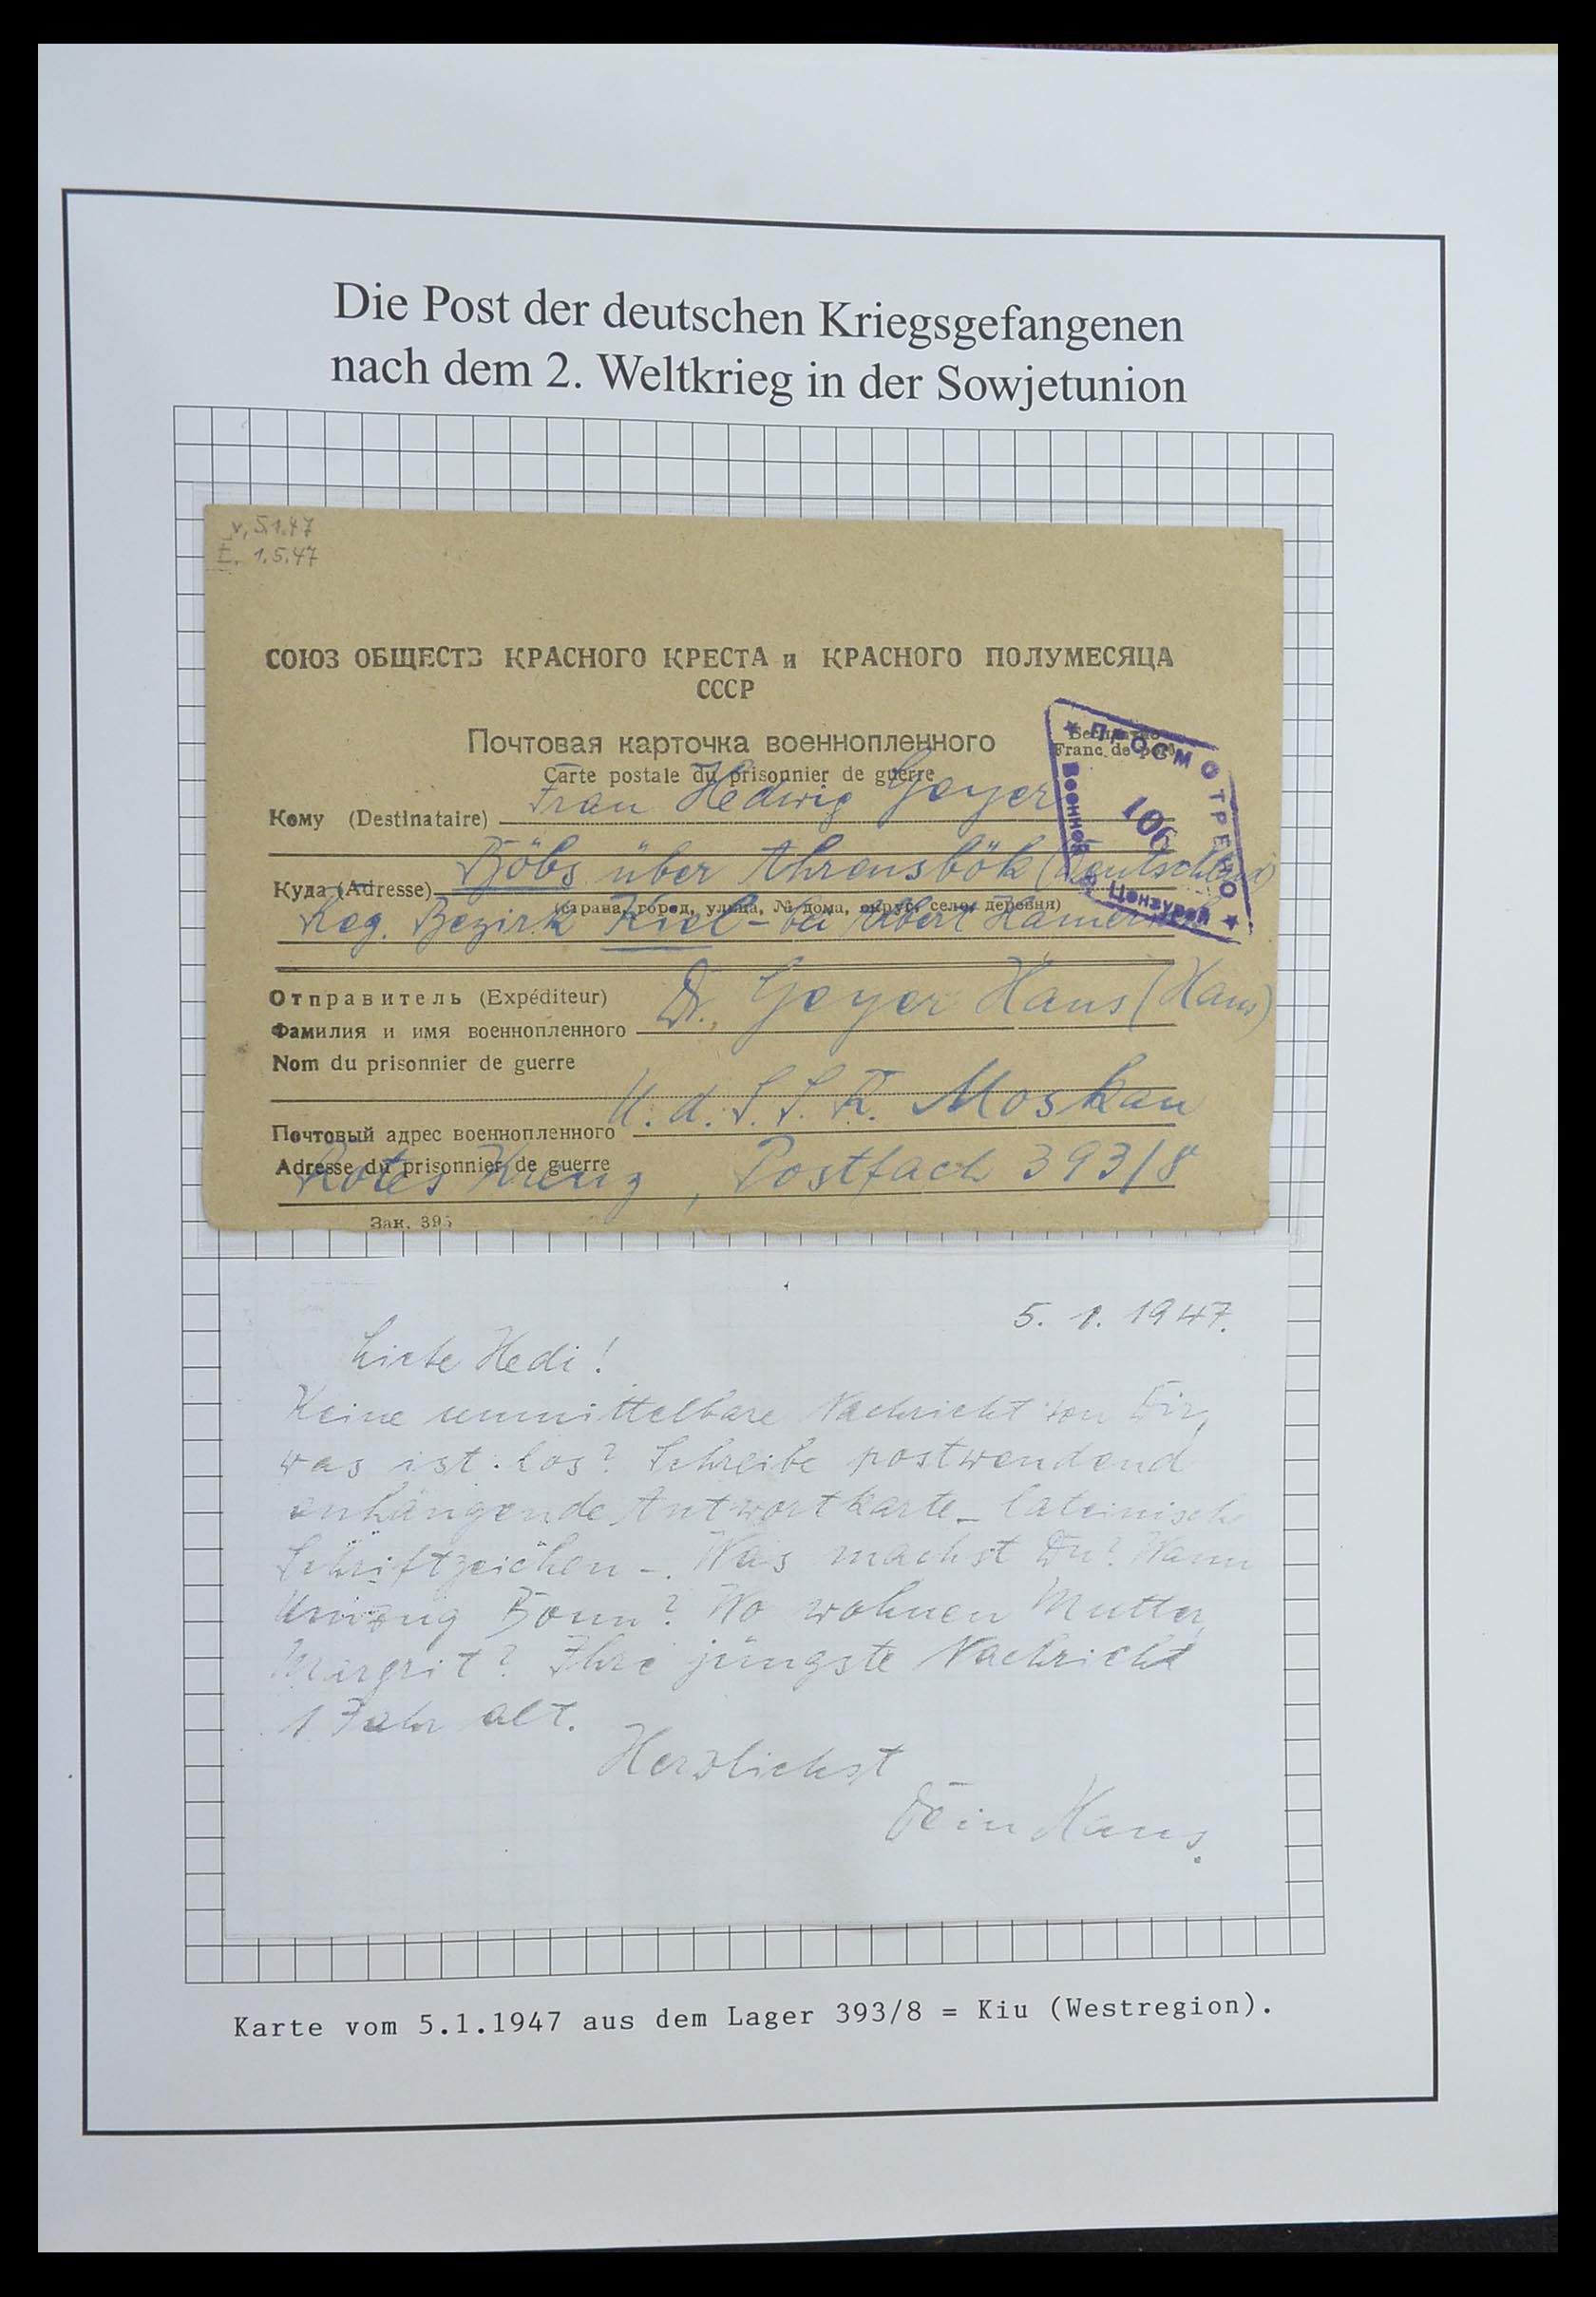 Die Post der deutschen Kriegsgefangenen
nach dem 2. Weltkrieg in der Sowjetunion
v. 5.1.47
E. 1.5.47
СОЮЗ ОБЩЕСТВ КРАСНОГО КРЕСТА и КРАСНОГО ПОЛУМЕСЯЦА
СССР
Почтовая карточка военнопленного
Бесплатно
Carte postale du prisonnier de guerre
Franc de port
★ ПРОСМОТРЕНО ★
Военной Цензурой
106
Кому (Destinataire) Frau Hedwig Geyer
Куда (Adresse) Böbs über Ahrensbök (Deutschland)
(страна, город, улица, № дома, округ, село, деревня)
Reg. Bezirk Kiel - bei Albert
Отправитель (Expéditeur)
Фамилия и имя военнопленного Dr. Geyer Hans (Hans)
Nom du prisonnier de guerre
Почтовый адрес военнопленного U.d.S.S.R. Moskau
Adresse du prisonnier de guerre
Rotes Kreuz, Postfach 393/8
Зак. 395
5. 1. 1947.
Liebe Hedi!
Keine unmittelbare Nachricht von Dir,
was ist los? Schreibe postwendend
anhängende Antwortkarte - lateinische
Schriftzeichen -. Was machst Du? Wann
Umzug Bonn? Wo wohnen Mutter,
Margrit? Ihre jüngste Nachricht
1 Jahr alt.
Herzlichst
Dein Hans.
Karte vom 5.1.1947 aus dem Lager 393/8 = Kiu (Westregion).